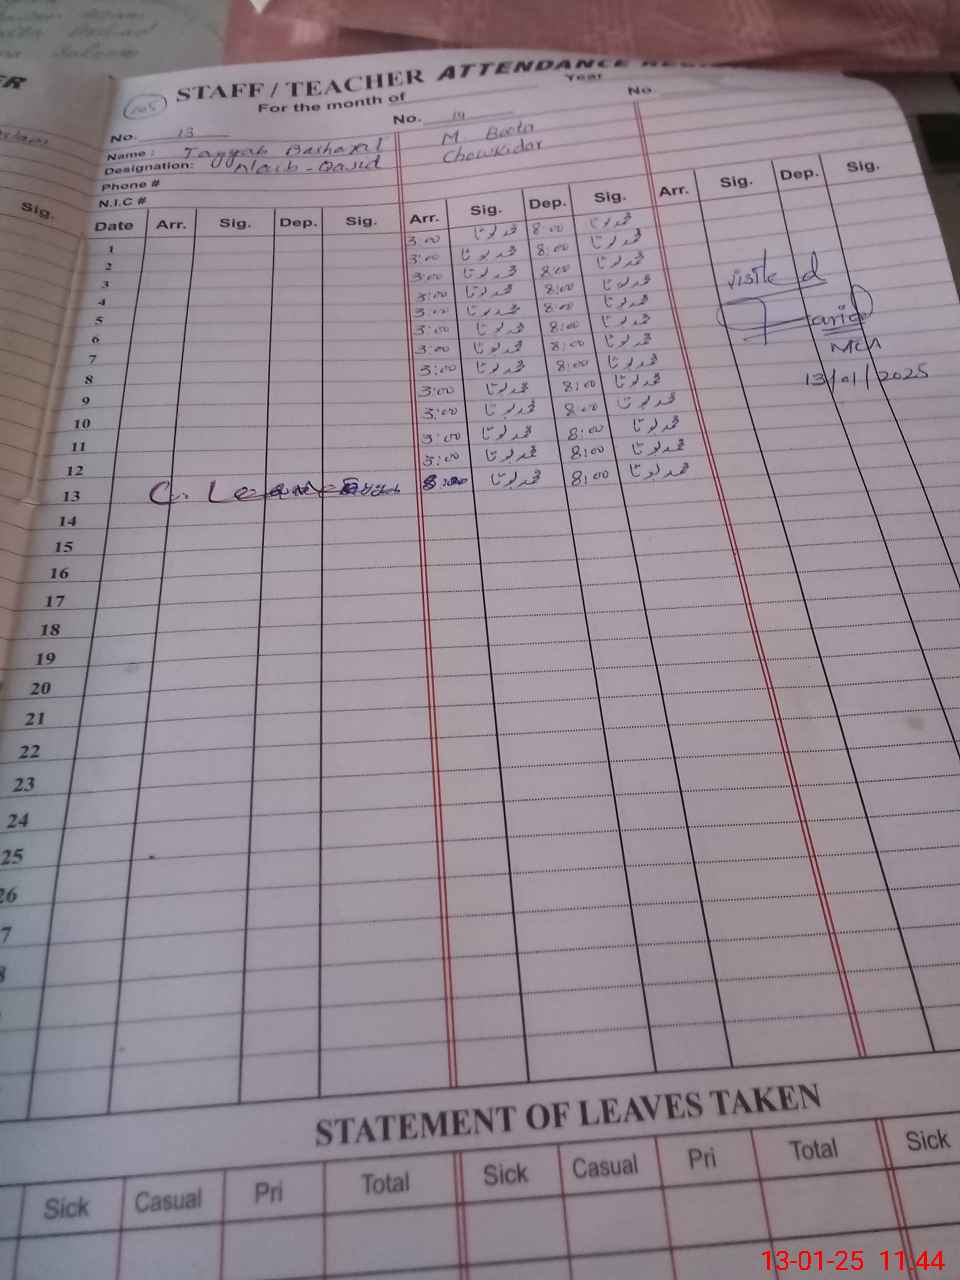 STAFF / TEACHER ATTENDANCE
For the month of
Year
No. 13
No. 14
No.
Name : Tayyab
M. Boota
Designation: Naib - Qasid
Chowkidar
Phone #
N.I.C #
Sig.
Date Arr. Sig. Dep. Sig. Arr. Sig. Dep. Sig. Arr. Sig. Dep. Sig.
1 3:00 محمد بوٹا 8:00 محمد بوٹا
2 3:00 محمد بوٹا 8:00 محمد بوٹا
3 3:00 محمد بوٹا 8:00 محمد بوٹا
4 3:00 محمد بوٹا 8:00 محمد بوٹا
5 3:00 محمد بوٹا 8:00 محمد بوٹا
6 3:00 محمد بوٹا 8:00 محمد بوٹا
7 3:00 محمد بوٹا 8:00 محمد بوٹا
8 3:00 محمد بوٹا 8:00 محمد بوٹا
9 3:00 محمد بوٹا 8:00 محمد بوٹا
10 3:00 محمد بوٹا 8:00 محمد بوٹا
11 3:00 محمد بوٹا 8:00 محمد بوٹا
12 3:00 محمد بوٹا 8:00 محمد بوٹا
13 C. Leave محمد بوٹا 8:00 محمد بوٹا
visited
Tariq
MEA
13/01/2025
14
15
16
17
18
19
20
21
22
23
24
25
26
7
8
STATEMENT OF LEAVES TAKEN
Sick Casual Pri Total Sick Casual Pri Total Sick
13-01-25 11.44